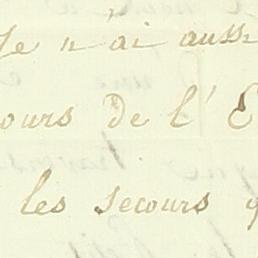 Je n'ai auss
ours de l'E
les secours q